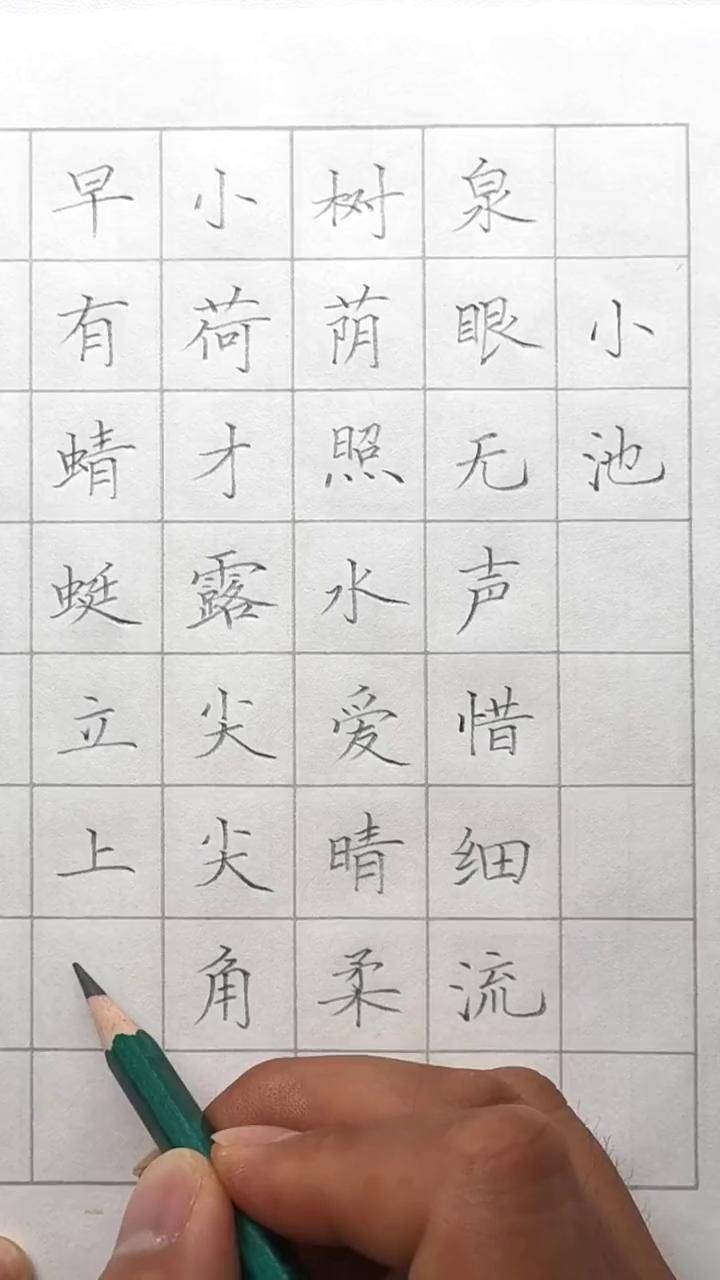 小池
泉眼无声惜细流
树荫照水爱晴柔
小荷才露尖尖角
早有蜻蜓立上